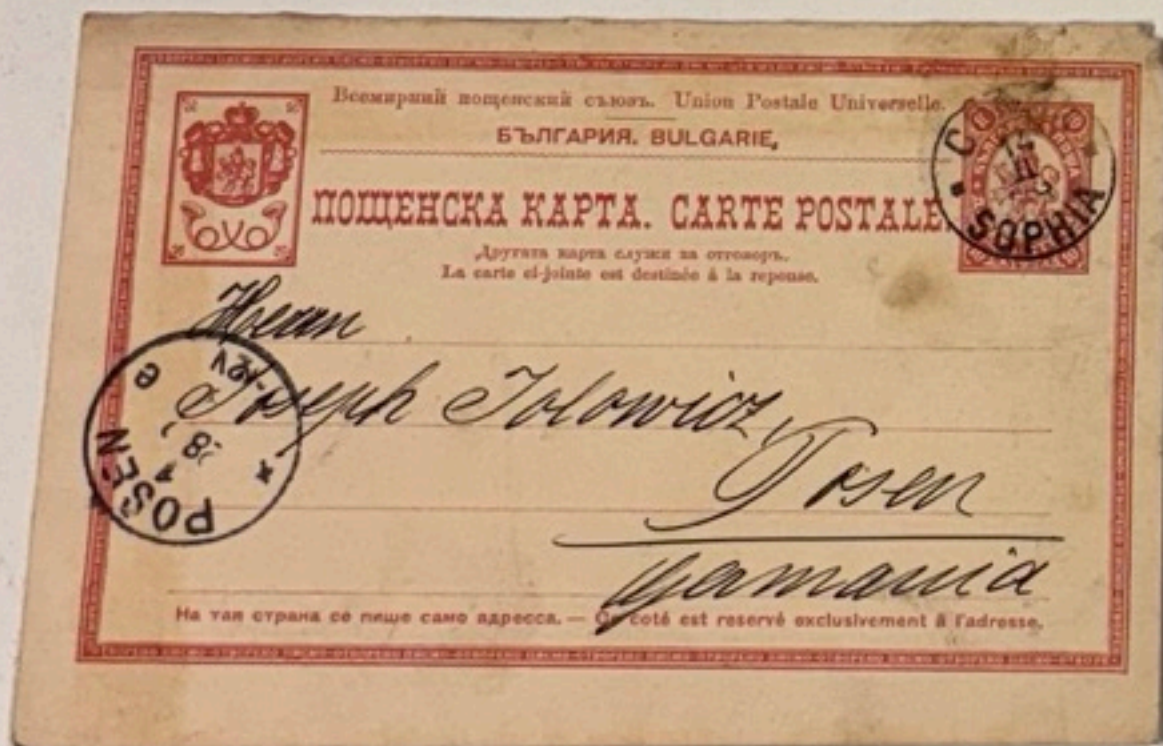 Всемирний пощенский съюзъ. Union Postale Universelle.
БЪЛГАРИЯ. BULGARIE,
ПОЩЕНСКА КАРТА. CARTE POSTALE.
Другата карта служи за отговоръ.
La carte ci-jointe est destinée à la reponse.
SOPHIA
Herrn
Joseph Jolowicz,
Posen
Germania
POSEN
На тая страна се пише само адресса. — Ce coté est reservé exclusivement à l'adresse.